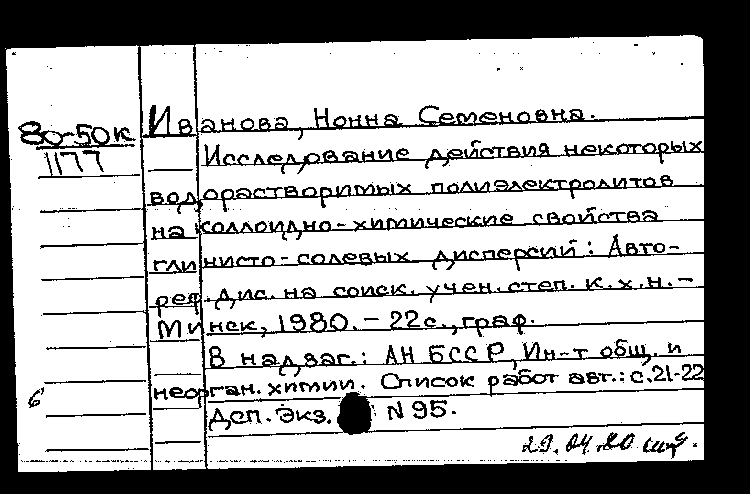 80-50к
1177
Иванова, Нонна Семеновна.
Исследование действия некоторых
водорастворимых полиэлектролитов
на коллоидно-химические свойства
глинисто-солевых дисперсий: Авто-
реф. дис. на соиск. учен. степ. к.х.н. -
Минск, 1980. - 22 с., граф.
В надзаг.: АН БССР, Ин-т общ. и
неорган. химии. Список работ авт.: с. 21-22
Деп. Экз. N 95.
б
29.04.80